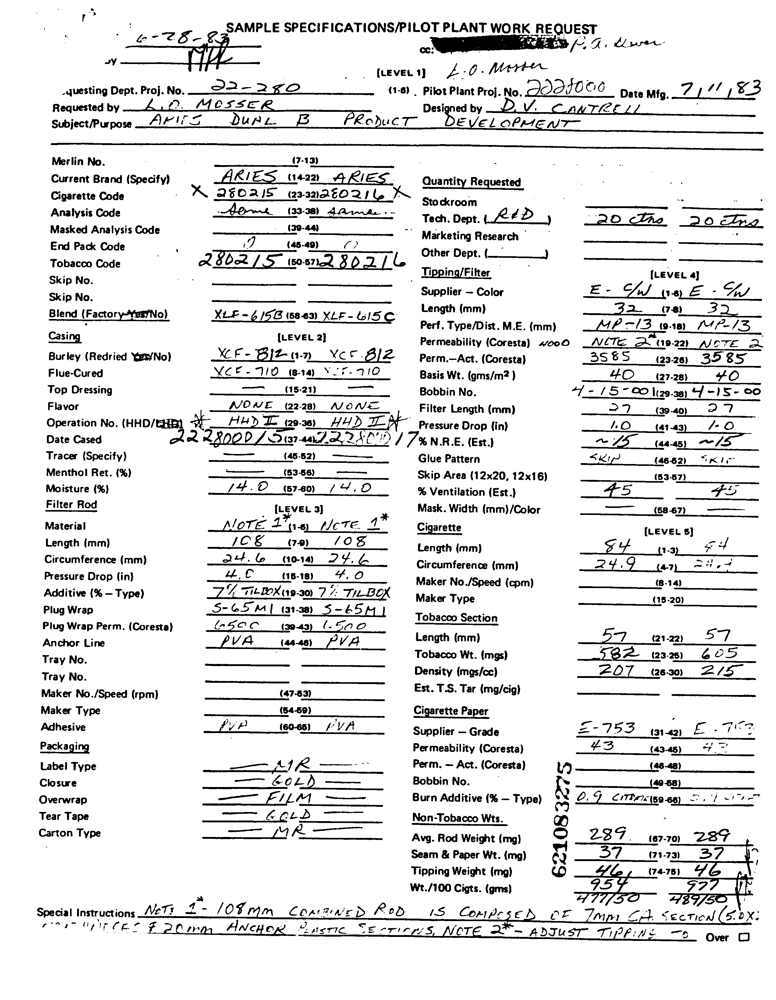 6-28-83
SAMPLE SPECIFICATIONS/PILOT PLANT WORK REQUEST
cc:
[LEVEL 1] L.O. Mosser
questing Dept. Proj. No. 22-280 (1-6) Pilot Plant Proj. No. 2228000 Date Mfg. 7/11/83
Requested by L.O. MOSSER Designed by D.V. CANTRELL
Subject/Purpose ARIES DUAL B PRODUCT DEVELOPMENT
Merlin No. (7-13)
Current Brand (Specify) ARIES (14-22) ARIES
Cigarette Code X 280215 (23-32) 280216 X
Analysis Code Same (33-38) same
Masked Analysis Code (39-44)
End Pack Code (45-49)
Tobacco Code 280215 (50-57) 280216
Skip No.
Skip No.
Blend (Factory Yes/No) XLF-615B (58-63) XLF-615C
Casing [LEVEL 2]
Burley (Redried Yes/No) YCF-B12 (1-7) YCF-B12
Flue-Cured YCF-710 (8-14) YCF-710
Top Dressing — (15-21) —
Flavor NONE (22-28) NONE
Operation No. (HHD/ * HHD II (29-36) HHD II *
Date Cased 222800015 (37-44) 222800017
Tracer (Specify) — (45-52) —
Menthol Ret. (%) — (53-56) —
Moisture (%) 14.0 (57-60) 14.0
Filter Rod [LEVEL 3]
Material NOTE 1* (1-6) NOTE 1*
Length (mm) 108 (7-9) 108
Circumference (mm) 24.6 (10-14) 24.6
Pressure Drop (in) 4.0 (15-18) 4.0
Additive (% – Type) 7% TILBOX (19-30) 7% TILBOX
Plug Wrap S-65M1 (31-38) S-65M1
Plug Wrap Perm. (Coresta) 6500 (39-43) 6500
Anchor Line PVA (44-46) PVA
Tray No.
Tray No.
Maker No./Speed (rpm) (47-53)
Maker Type (54-59)
Adhesive PVA (60-65) PVA
Packaging
Label Type — MR —
Closure — GOLD —
Overwrap — FILM —
Tear Tape — GOLD —
Carton Type — MR —
Quantity Requested
Stockroom
Tech. Dept. ( R&D ) 20 ctns 20 ctns
Marketing Research
Other Dept. ( )
Tipping/Filter [LEVEL 4]
Supplier – Color E - C/W (1-6) E - C/W
Length (mm) 32 (7-8) 32
Perf. Type/Dist. M.E. (mm) MP-13 (9-18) MP-13
Permeability (Coresta) NOTE 2* (19-22) NOTE 2
Perm.–Act. (Coresta) 3585 (23-26) 3585
Basis Wt. (gms/m²) 40 (27-28) 40
Bobbin No. 4-15-001 (29-38) 4-15-00
Filter Length (mm) 27 (39-40) 27
Pressure Drop (in) 1.0 (41-43) 1.0
% N.R.E. (Est.) ~15 (44-45) ~15
Glue Pattern SKIP (46-52) SKIP
Skip Area (12x20, 12x16) (53-57)
% Ventilation (Est.) 45 45
Mask. Width (mm)/Color — (58-67) —
Cigarette [LEVEL 5]
Length (mm) 84 (1-3) 84
Circumference (mm) 24.9 (4-7) 24.9
Maker No./Speed (cpm) (8-14)
Maker Type (15-20)
Tobacco Section
Length (mm) 57 (21-22) 57
Tobacco Wt. (mgs) 582 (23-25) 605
Density (mgs/cc) 207 (26-30) 215
Est. T.S. Tar (mg/cig)
Cigarette Paper
Supplier – Grade E-753 (31-42) E-753
Permeability (Coresta) 43 (43-45) 43
Perm. – Act. (Coresta) (46-48)
Bobbin No. (49-58)
Burn Additive (% – Type) 0.9 CITRATE (59-66)
Non-Tobacco Wts.
Avg. Rod Weight (mg) 289 (67-70) 289
Seam & Paper Wt. (mg) 37 (71-73) 37
Tipping Weight (mg) 46 (74-75) 46
Wt./100 Cigts. (gms) 954 977
477/50 489/50
621083275
Special Instructions NOTE 1* - 108MM COMBINED ROD IS COMPOSED OF 7MM CA SECTION (5.0X
& 20MM ANCHOR PLASTIC SECTIONS, NOTE 2* - ADJUST TIPPING TO Over